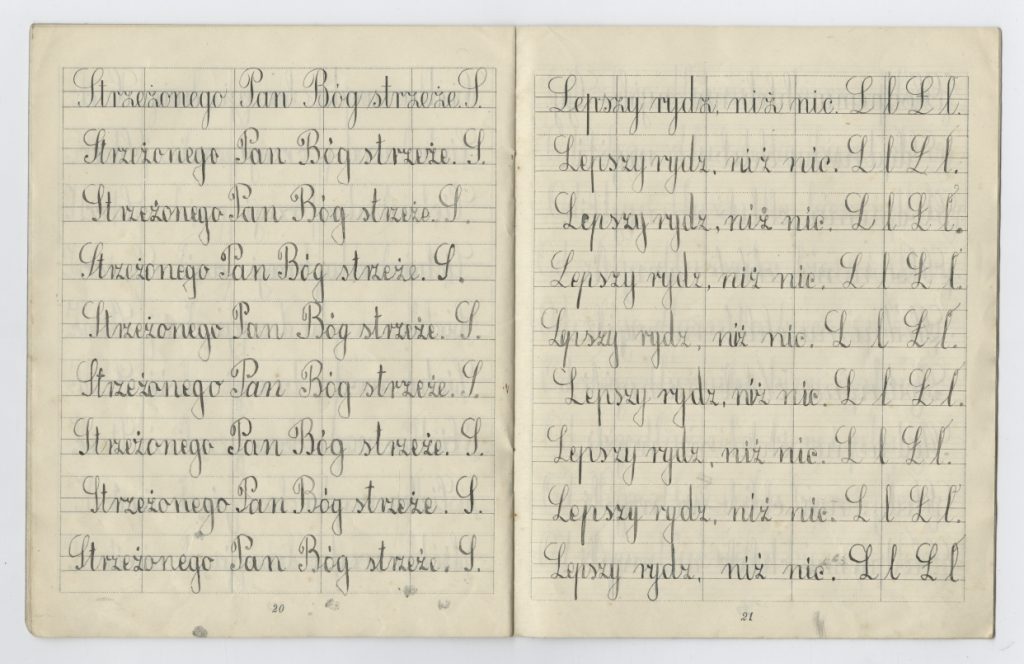 Strzeżonego Pan Bóg strzeże. S.
Strzeżonego Pan Bóg strzeże. S.
Strzeżonego Pan Bóg strzeże. S.
Strzeżonego Pan Bóg strzeże. S.
Strzeżonego Pan Bóg strzeże. S.
Strzeżonego Pan Bóg strzeże. S.
Strzeżonego Pan Bóg strzeże. S.
Strzeżonego Pan Bóg strzeże. S.
Strzeżonego Pan Bóg strzeże. S.
20
Lepszy rydz, niż nic. L l Ł l.
Lepszy rydz, niż nic. L l Ł l.
Lepszy rydz, niż nic. L l Ł ł.
Lepszy rydz, niż nic. L l Ł ł.
Lepszy rydz, niż nic. L l Ł ł.
Lepszy rydz, niż nic. L l Ł ł.
Lepszy rydz, niż nic. L l Ł ł.
Lepszy rydz, niż nic. L l Ł ł.
Lepszy rydz, niż nic. L l Ł ł
21